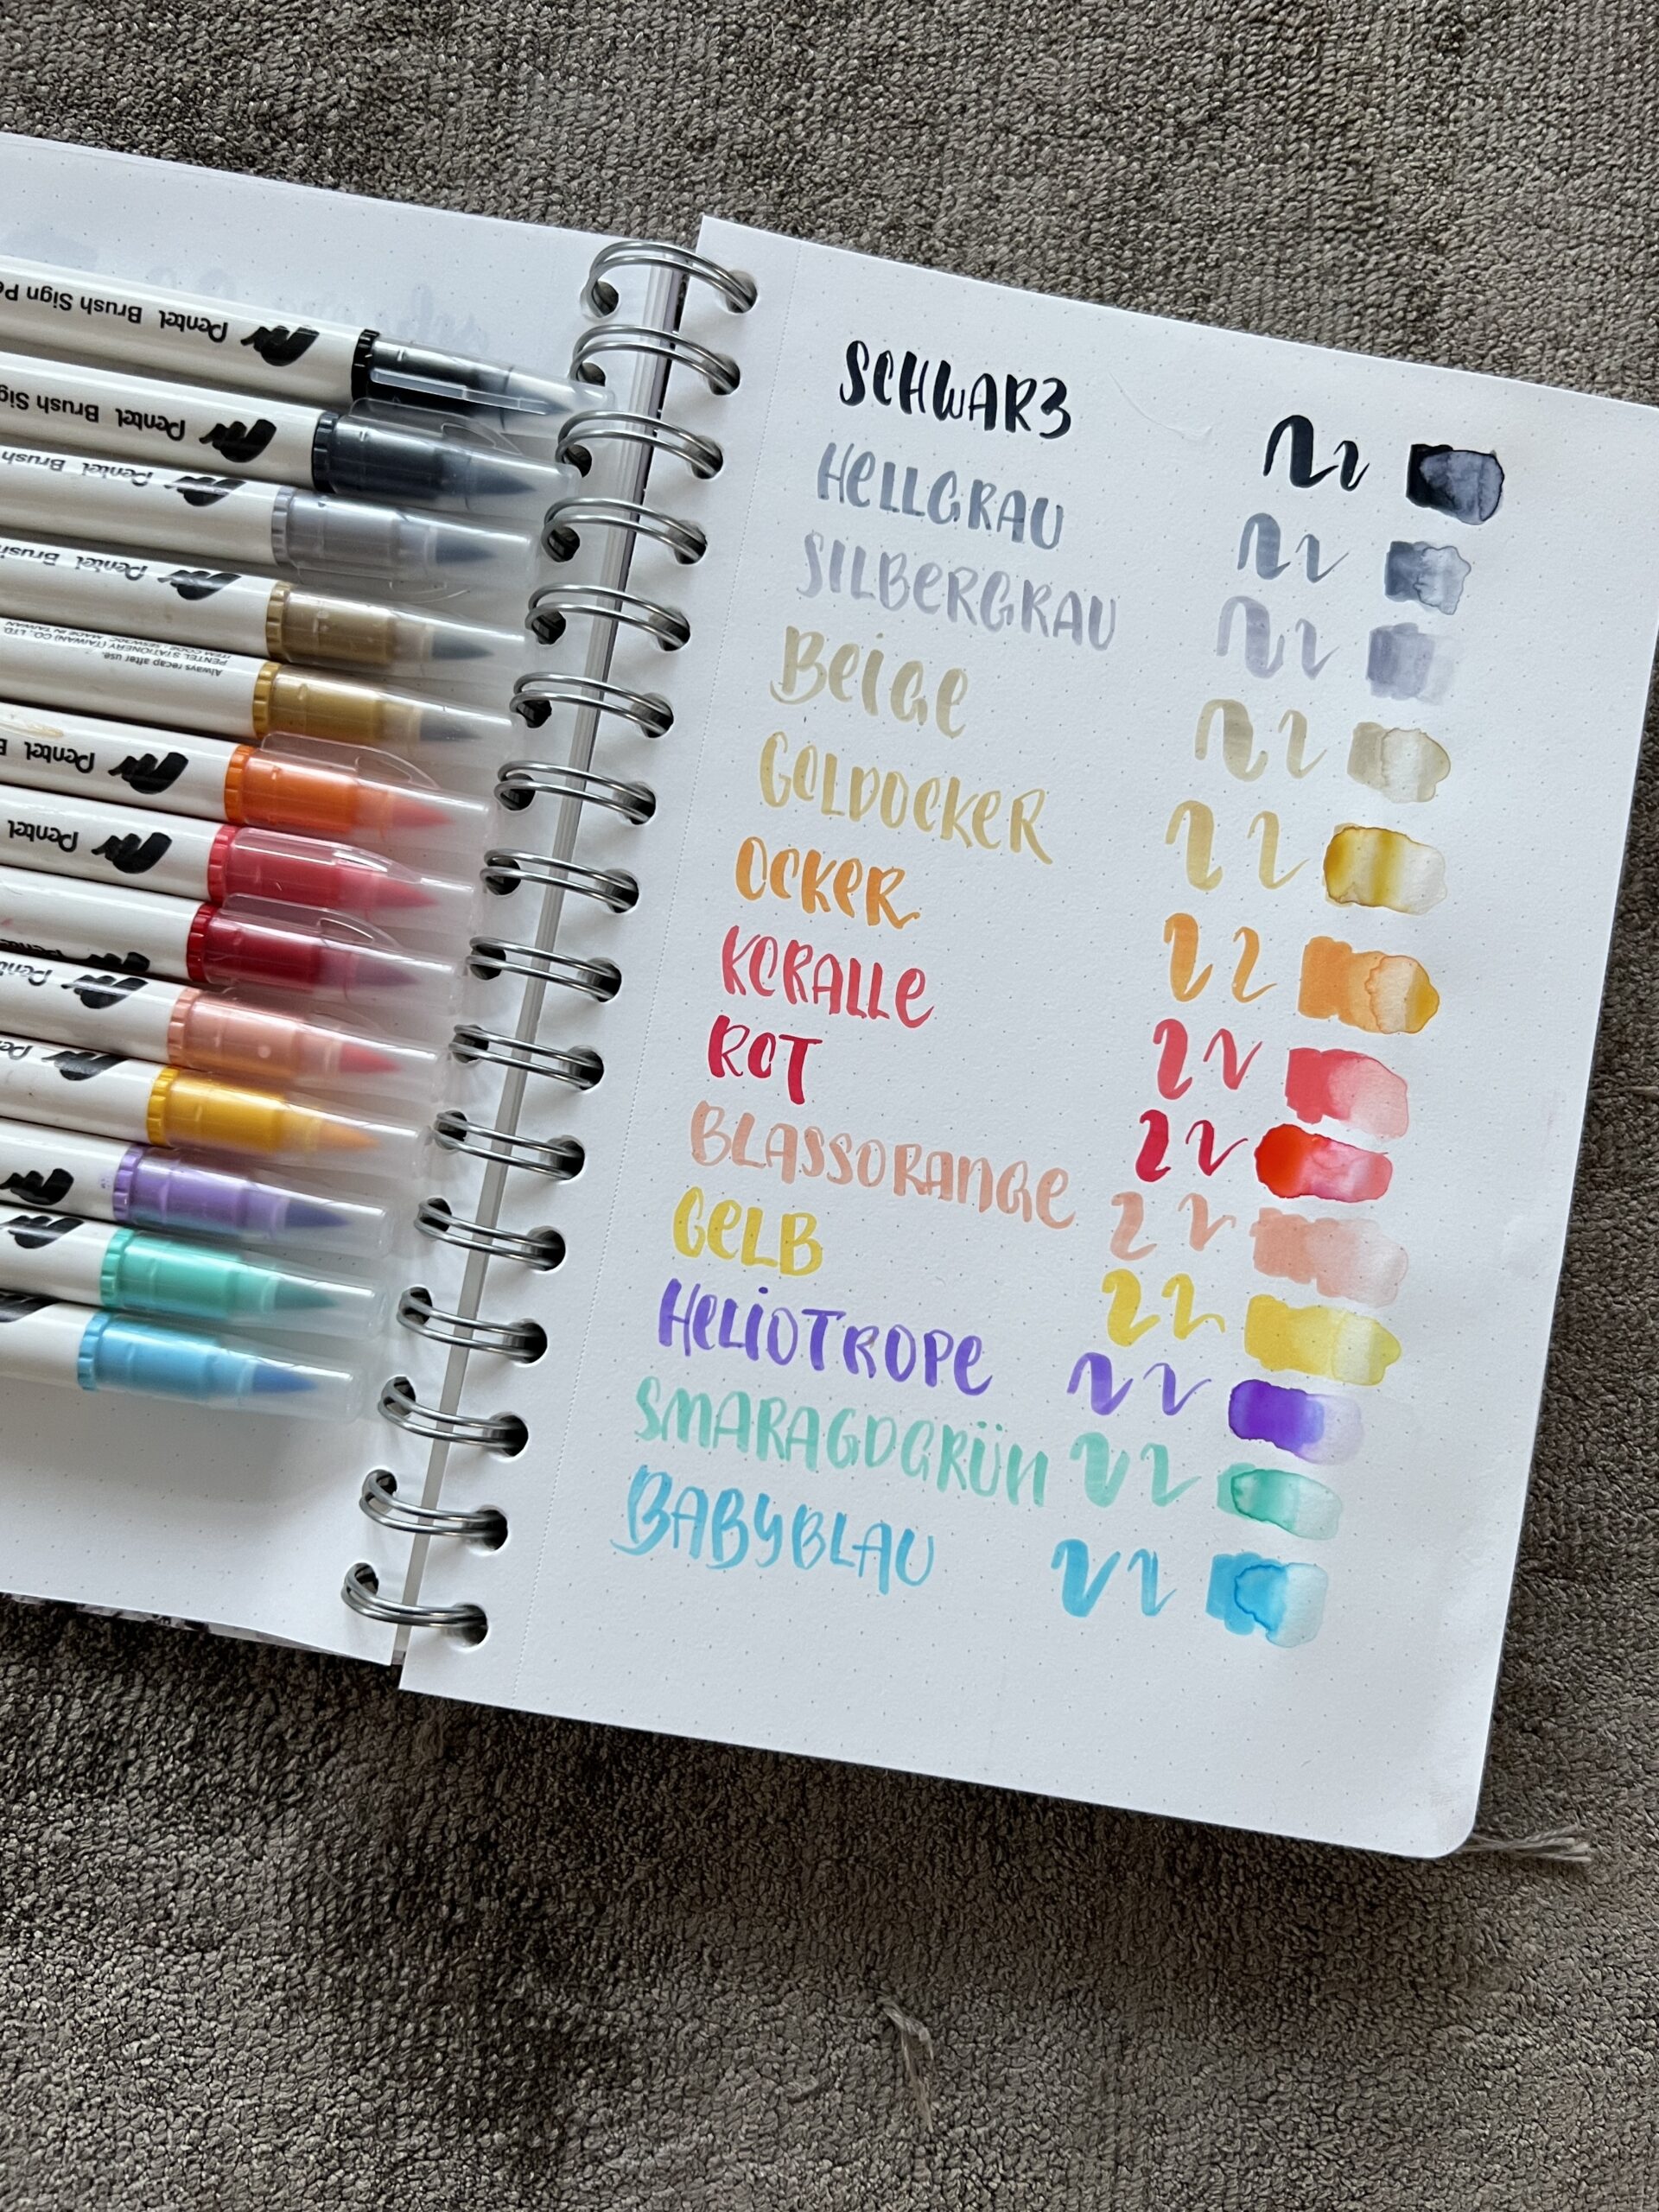 Pentel Brush Sign Pe
Pentel Brush Sig
Pentel Brush
Pentel Brush
Always recap after use.
PENTEL STATIONERY (TAIWAN) CO., LTD.
ITEM CODE : SESW30C MADE IN TAIWAN
Pentel B
Pentel
SCHWARZ
HELLGRAU
SILBERGRAU
BEIGE
GOLDOCKER
OCKER
KORALLE
ROT
BLASSORANGE
GELB
HELIOTROPE
SMARAGDGRÜN
BABYBLAU